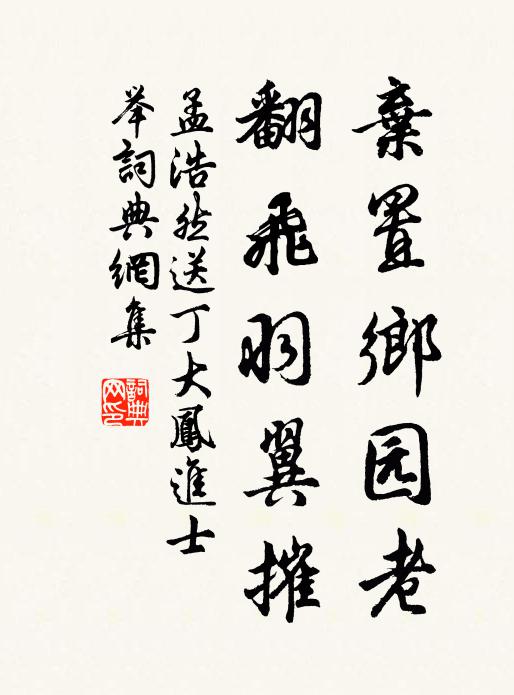 棄置鄉园老
翻飛羽翼摧
孟浩然送丁大鳳進士
举詞典網集
詞典网印